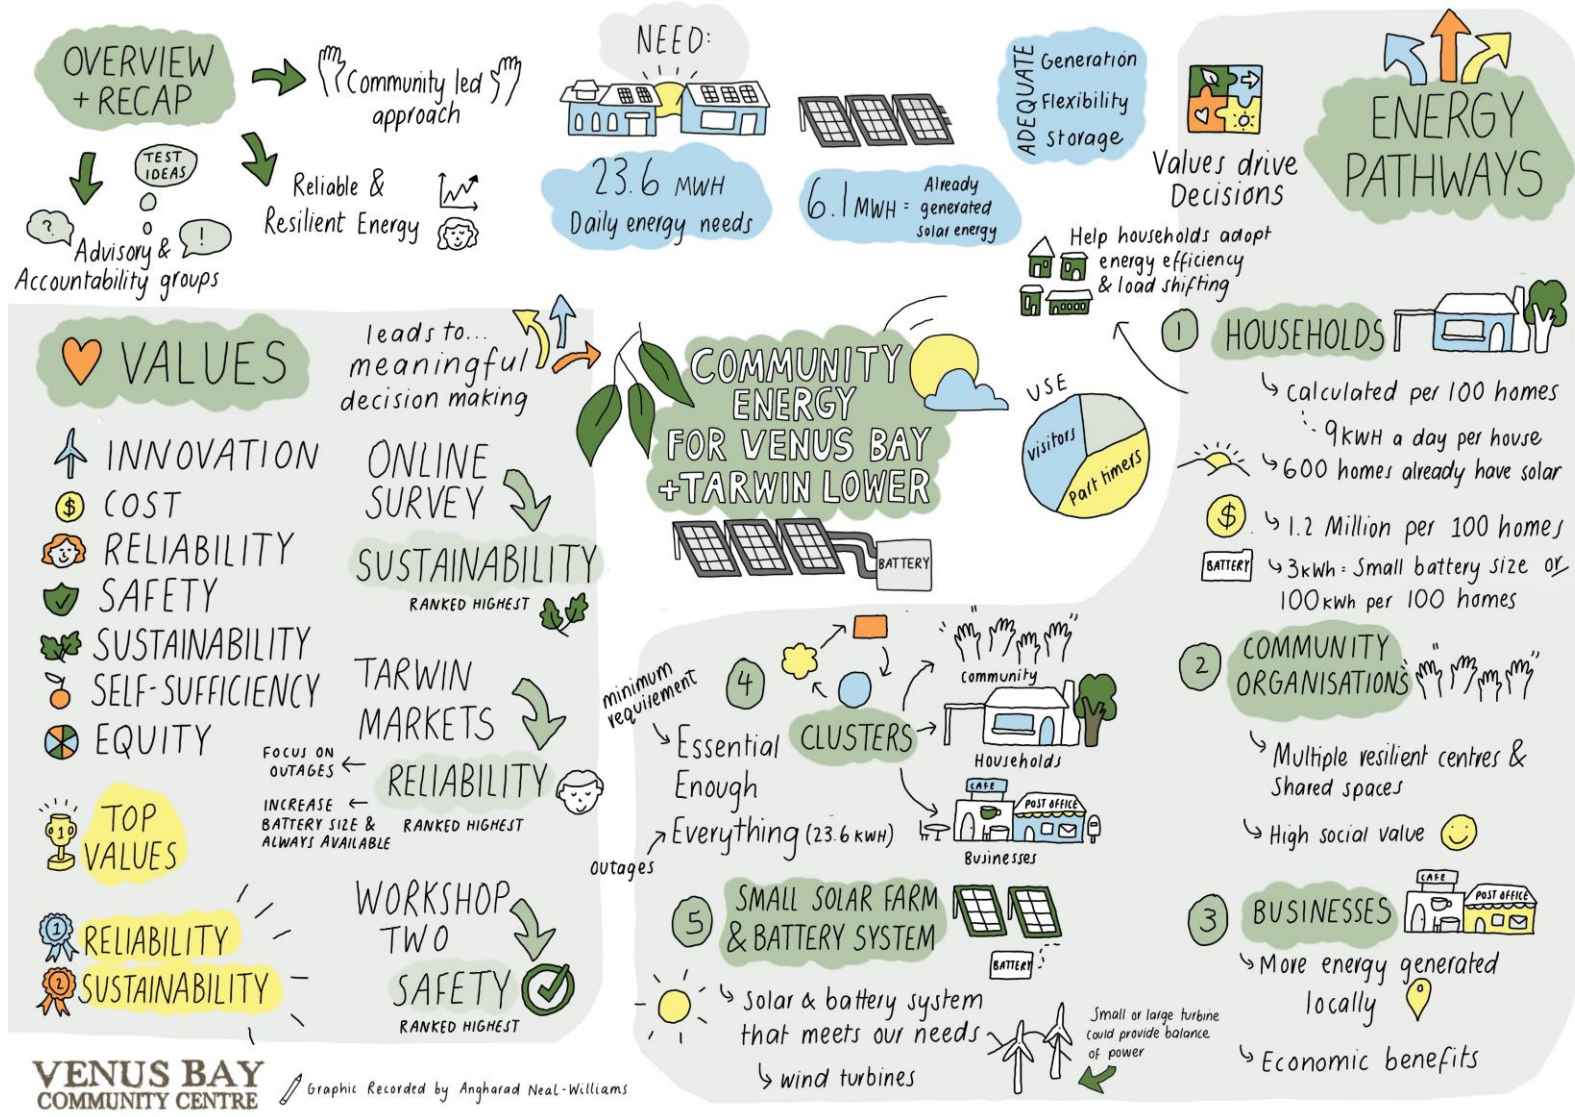 OVERVIEW
+ RECAP
Community led
approach
TEST
IDEAS
?
!
Advisory &
Accountability groups
Reliable &
Resilient Energy
NEED:
23.6 MWH
Daily energy needs
6.1 MWH =
Already
generated
solar energy
ADEQUATE
Generation
Flexibility
storage
Values drive
Decisions
ENERGY
PATHWAYS
VALUES
leads to...
meaningful
decision making
INNOVATION
$ COST
RELIABILITY
SAFETY
SUSTAINABILITY
SELF-SUFFICIENCY
EQUITY
1
TOP
VALUES
1 RELIABILITY
2 SUSTAINABILITY
ONLINE
SURVEY
SUSTAINABILITY
RANKED HIGHEST
TARWIN
MARKETS
RELIABILITY
RANKED HIGHEST
FOCUS ON
OUTAGES
INCREASE
BATTERY SIZE &
ALWAYS AVAILABLE
WORKSHOP
TWO
SAFETY
RANKED HIGHEST
COMMUNITY
ENERGY
FOR VENUS BAY
+TARWIN LOWER
BATTERY
USE
visitors
Part timers
Help households adopt
energy efficiency
& load shifting
1 HOUSEHOLDS
calculated per 100 homes
9KWH a day per house
600 homes already have solar
$
1.2 Million per 100 homes
BATTERY
3kWh = Small battery size or
100kWh per 100 homes
2 COMMUNITY
ORGANISATIONS
Multiple resilient centres &
Shared spaces
High social value
3 BUSINESSES
CAFE
POST OFFICE
More energy generated
locally
Economic benefits
4
CLUSTERS
minimum
requirement
Essential
Enough
Everything (23.6 KWH)
outages
Community
Households
CAFE
POST OFFICE
Businesses
5 SMALL SOLAR FARM
& BATTERY SYSTEM
BATTERY
Solar & battery system
that meets our needs
wind turbines
Small or large turbine
could provide balance
of power
VENUS BAY
COMMUNITY CENTRE
Graphic Recorded by Angharad Neal-Williams